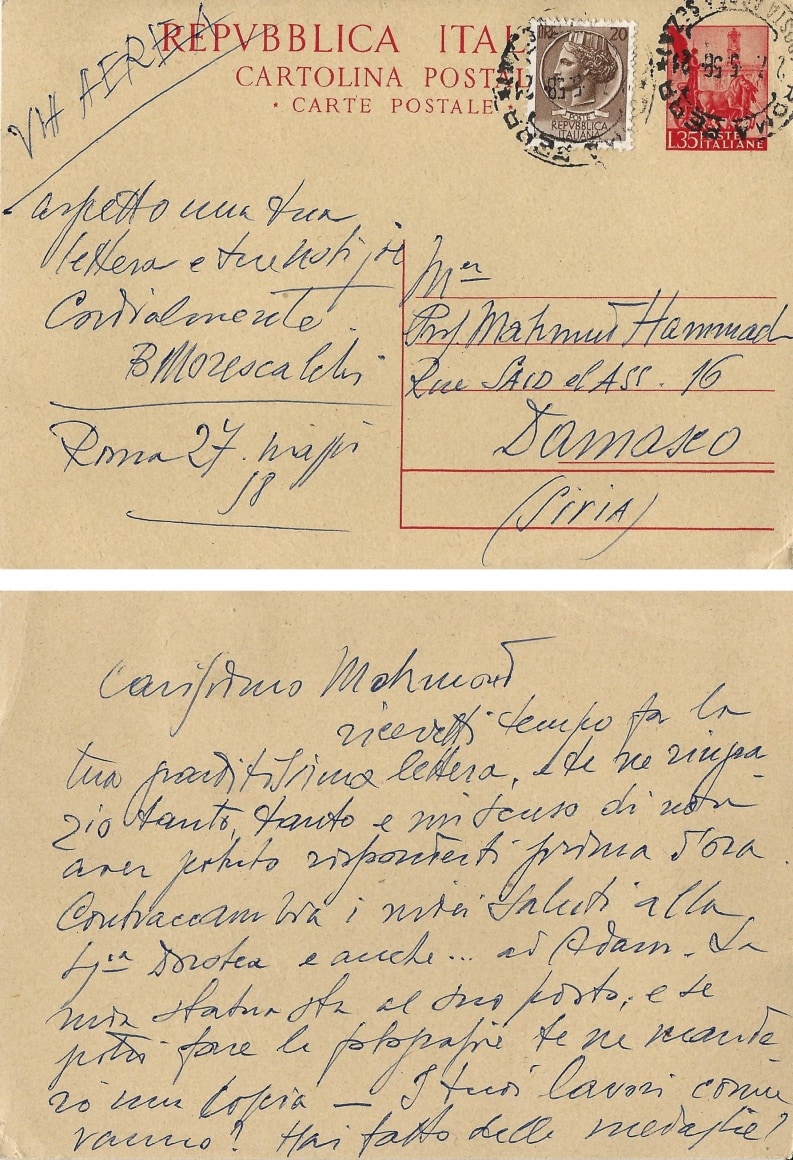 REPVBBLICA ITAL
CARTOLINA POSTAL
· CARTE POSTALE ·
VIA AEREA
LIRE 20
POSTE
REPVBBLICA
ITALIANE
L.35 POSTE
ITALIANE
ROMA
FERR
aspetto una tua
lettera e tue notizie
Cordialmente
B Morescalchi
Roma 27. maggi
58
Mer
Prof. Mahmud Hammad
Rue SAID el ASS. 16
Damasco
(SIRIA)
Carissimo Mahmoud
ricevetti tempo fa la
tua graditissima lettera, e te ne ringra-
zio tanto, tanto e mi scuso di non
aver potuto risponderti prima d'ora.
Contraccambia i miei saluti alla
Sig.ra Dorotea e anche... ad Adam. La
mia statua sta al suo posto, e se
potrò fare le fotografie te ne mande-
rò una copia — I tuoi lavori come
vanno? Hai fatto delle medaglie?